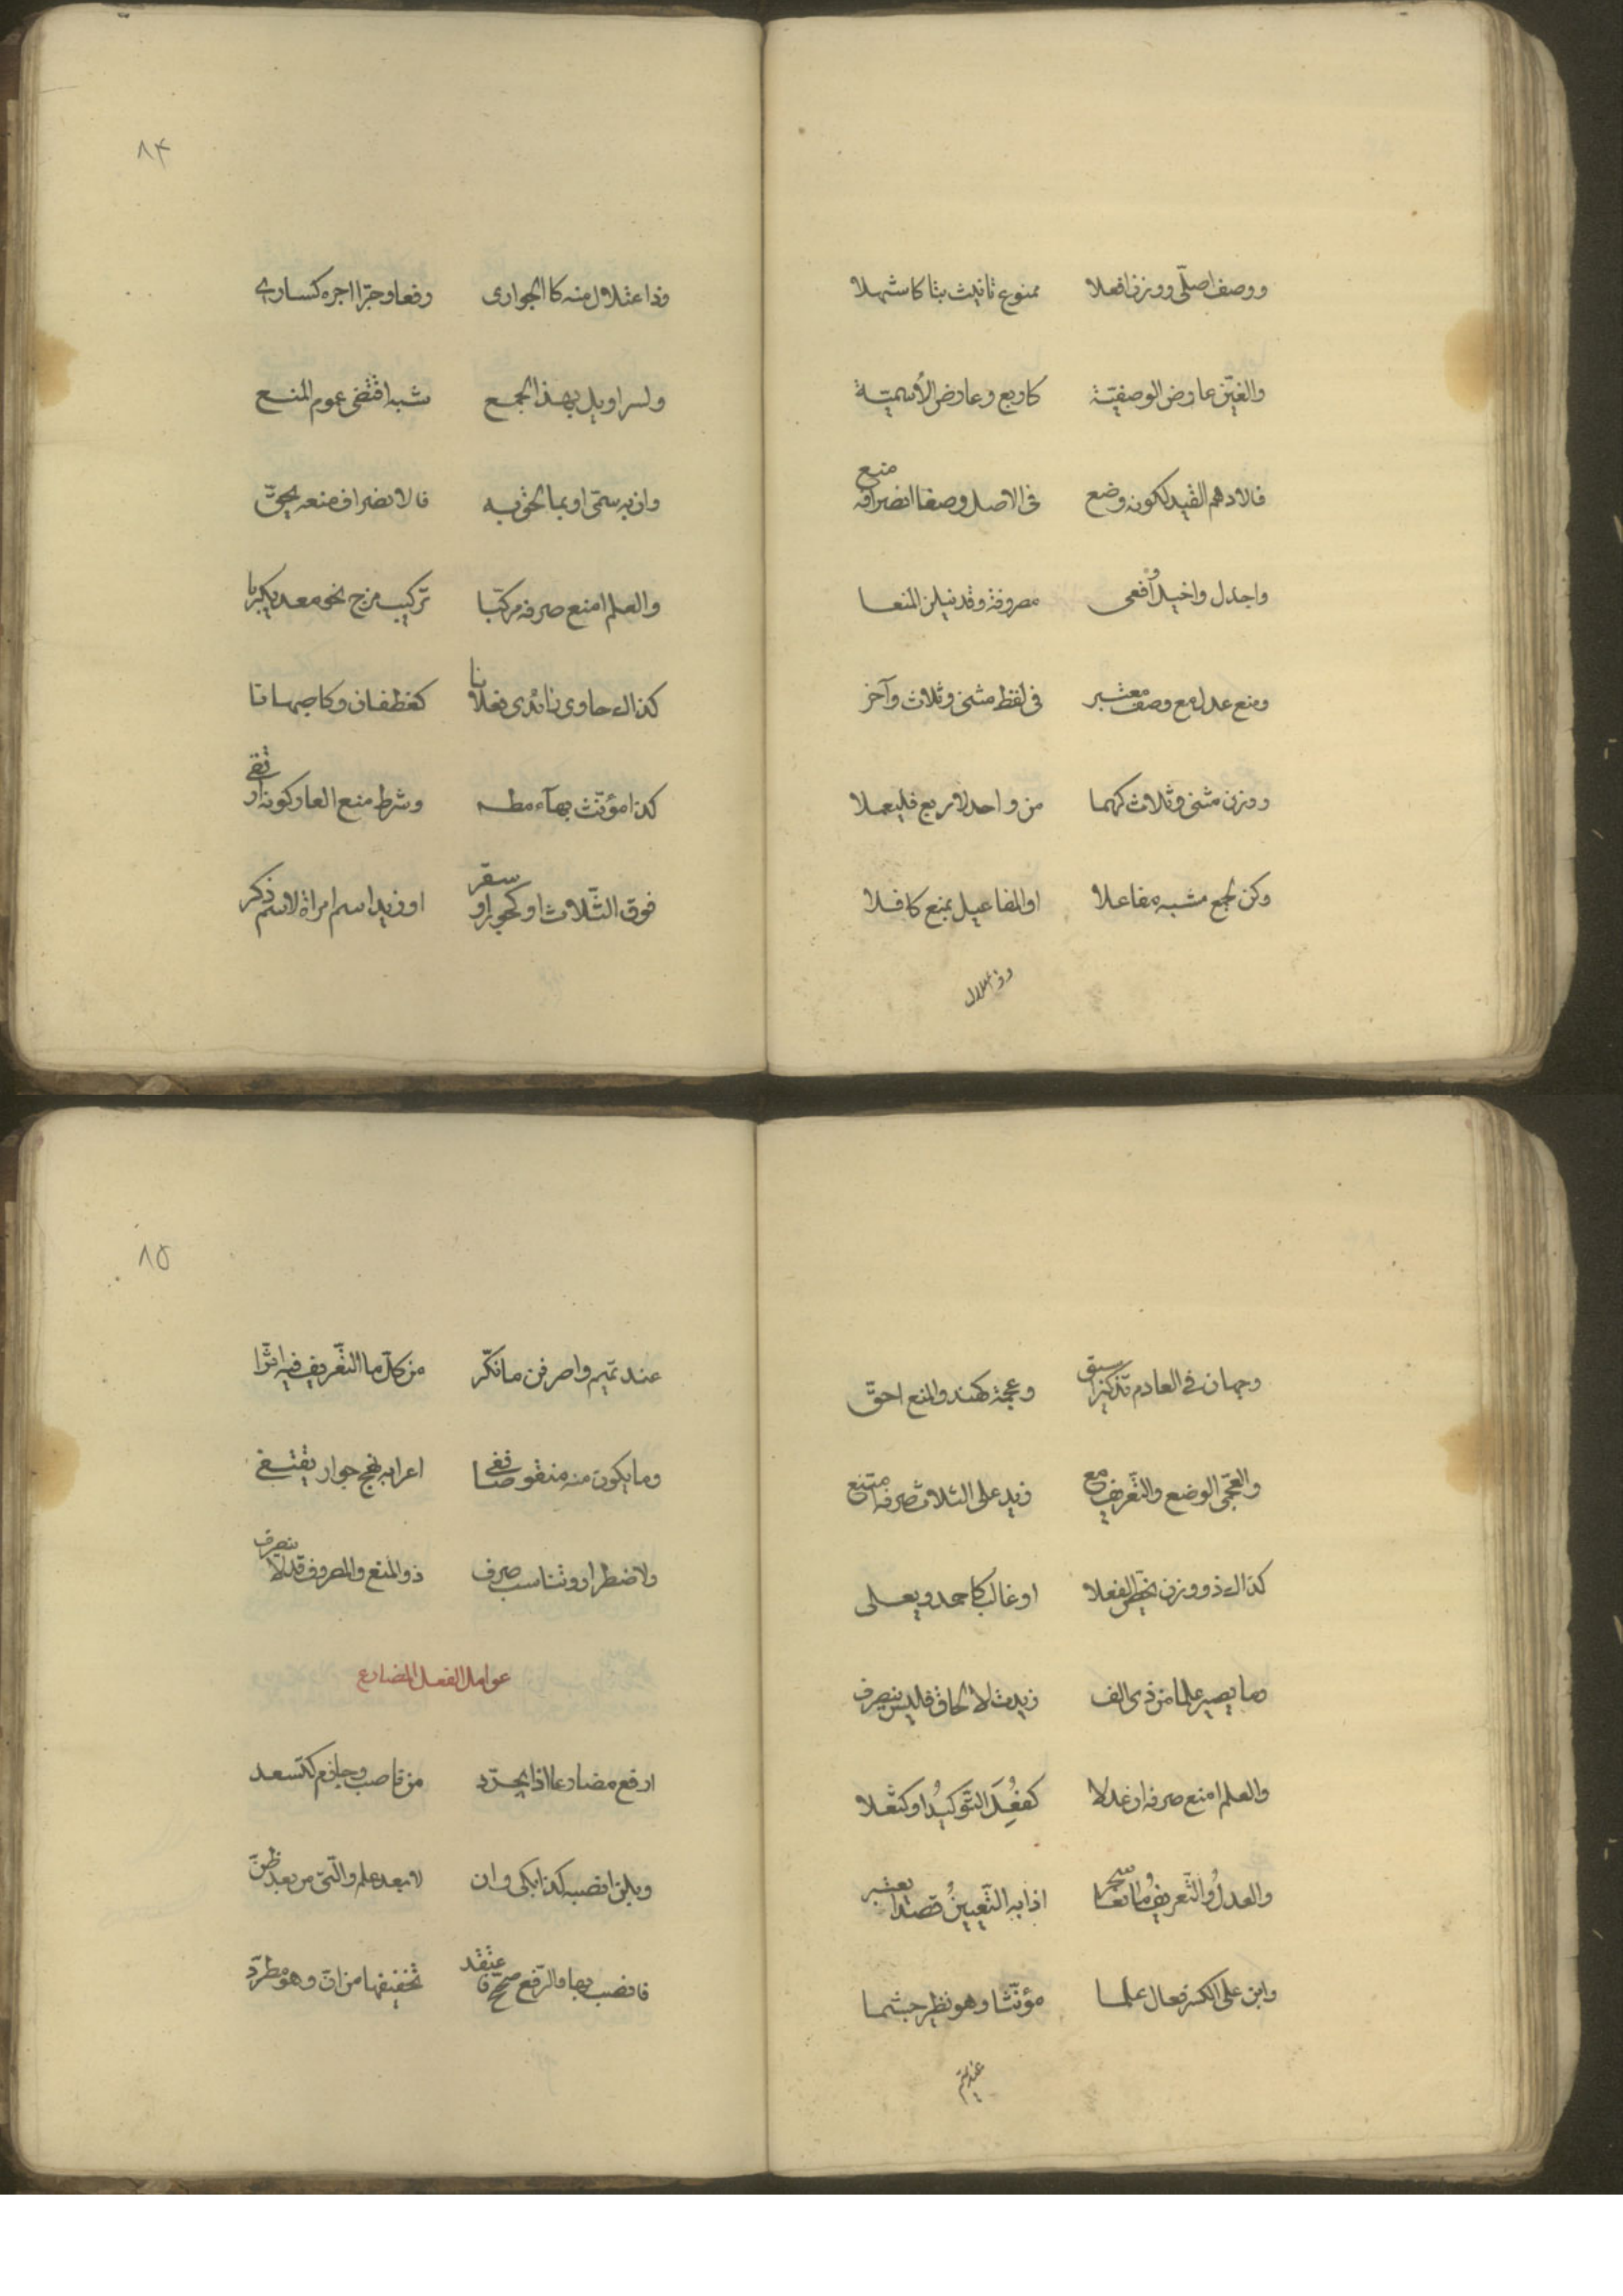 ووصف اصلّى ووزن افعلا ممنوع تانيث بتا كاشهلا
والغينّ عارض الوصفيّة كاربع وعارض الأسميّة
فالادهم القيد لكونه وضع فى الاصل وصفا انصرافه منع
واجدل واخيل وافعى مصروفة وقد ينلن المنعا
ومنع عدل مع وصف معتبر فى لفظ مثنى وثلاث وآخر
ووزن مثنى وثلاث كهما من واحد لاربع فليعلا
وكن لجمع مشبه مفاعلا او المفاعيل بمنع كافلا
وذ اعتلال
٨٤
وذا عتلال منه كا الجوارى رفعا وجرّا اجره كسارى
ولسراويل بهذا الجمع شبه اقتضى عموم المنع
وان به سمّى او بما لحق به فالانصراف منعه يحقّ
والعلم امنع صرفه مركّبا تركيب مزج نحو معد يكربا
كذاك حاوى زائدى فعلانا كغطفان وكاصبهانا
كذا مؤنّث بهآء مطلقا وشرط منع العار كونه ارتقى
فوق الثّلاث او كجور او سقر او زيد اسم امراة لا سم ذكر
وجهان فى العادم تذكيرا سبق وعجمة كهند والمنع احقّ
والعجمّى الوضع والتّعريف مع زيد على الثلاث صرفه متنع
كذاك ذو وزن يخصّ الفعلا او غالب كاحمد ويعلى
وما يصير علما من ذى الف زيدت لالحاق فليس ينصرف
والعلم امنع صرفه ان عدلا كفُعِلَ التّوكيدُ او كثعلا
والعدلُ والتّعريفُ مانعا سحر اذا به التّعيينُ قصدا يعتبر
وابن على الكسر فعال علما مؤنّثا وهو نظير جشما
عند تميم
٨٥
عند تميم واصرفن ما نكّر من كلّ ما التّعريف فيه اثّرا
وما يكون منه منقوصا ففى اعرابه نهج جوار يقتفى
ولاضطرار وتناسب صرف ذو المنع والمصروف قد لا ينصرف
عوامل الفعل المضارع
ارفع مضارعا اذا يجرّد من ناصب وجازم كتسعد
وبلن انصبه كذا بكى وان لا بعد علم والّتى من بعد ظنّ
فانصب بها والرّفع صحّح واعتقد تخفيفها من انّ وهو مطرّد